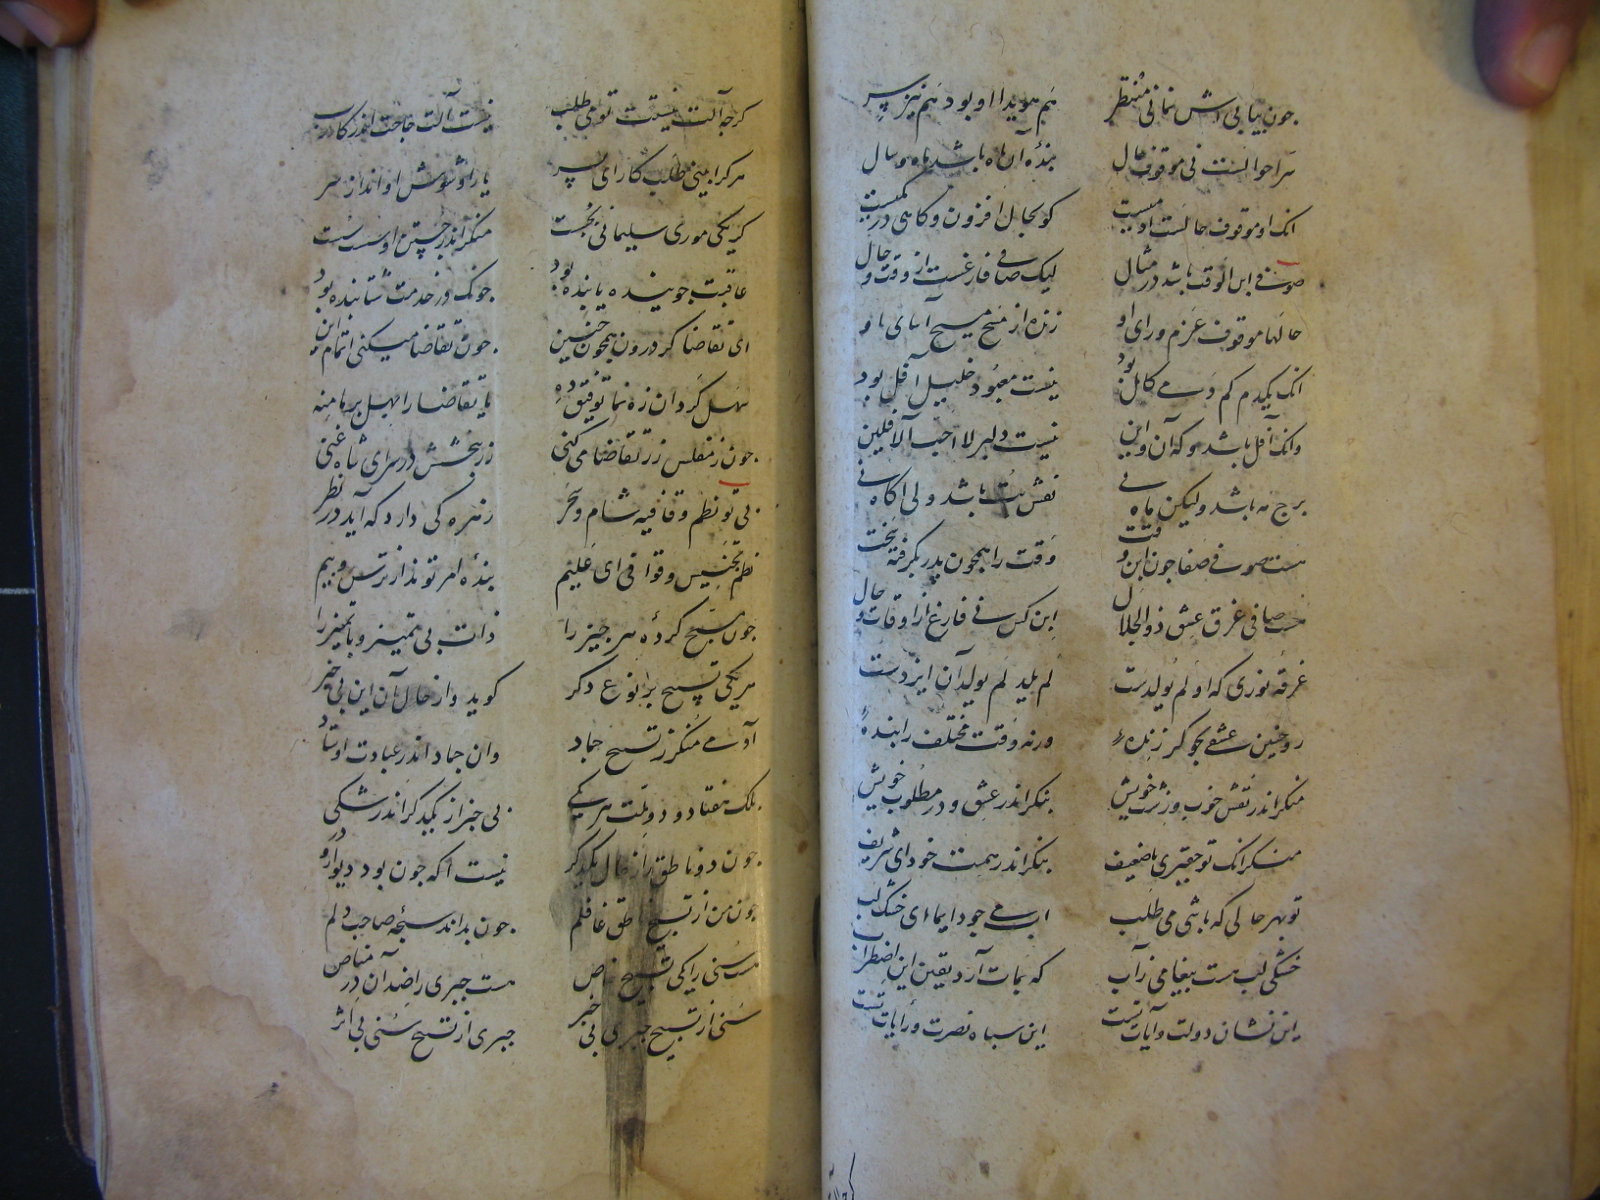 جون بیابی اش نمانی منتظر هم هویدا او بود هم نیز سر
میر احوالست نی موقوف حال بندهٔ آن ماه باشد ماه و سال
انک او موقوف حالست او میست کو بحال افزون و کاهی در کمیست
صوفی ابن الوقت باشد در مثال لیک صافی فارغست از وقت و حال
حالها موقوف عزم و رای او زنده از نفخ مسیح آسای او
انک یکدم کم دمی کامل بود نیست معبود خلیل آفل بود
وانک آفل باشد و که آن و این نیست دلبر لا احب الآفلین
برج مه باشد ولیکن ماه نی نقش بت باشد ولی اکاه نی
هست صوفی صفا جون ابن وقت وقت را همجون پدر بکرفته سخت
هست صافی غرق عشق ذو الجلال ابن کس نی فارغ از اوقات و حال
غرقه نوری که او لم یولدست لم یلد لم یولد آن ایزدست
رو جنین عشقی بجو کر زندهٔ ورنه وقت مختلف را بندهٔ
منکر اندر نقش خوب و زشت خویش بنکر اندر عشق و در مطلوب خویش
منکر انک تو حقیری یا ضعیف بنکر اندر همت خود ای شریف
تو بهر حالی که باشی می طلب آب می جو دایما ای خشک لب
خشکی لب هست بیغامی ز آب که بمات آرد یقین این اضطراب
این نشان دولت و آیات تست این سباه نصرت و رایات تست
کرجه آلت نیستت تو می طلب نیست آلت حاجت اندر کار رب
هر کرا بینی طلب کار ای پسر یار او شو پیش او انداز سر
کر یکی موری سلیمانی بجست منکر اندر جستن او سست سست
عاقبت جوینده یابنده بود جونک در خدمت شتابنده بود
ای تقاضا کر درون همجون جنین جون تقاضا میکنی اتمام این
سهل کردان ره نما توفیق ده یا تقاضا را بهل بر ما منه
جون ز مفلس زر تقاضا می کنی زر ببخشش در سر ای شاه غنی
بی تو نظم و قافیه شام و سحر زهره کی دارد که آید در نظر
نظم و تجنیس و قوافی ای علیم بندهٔ امر تواند از ترس و بیم
جون مسبح کردهٔ هر جیز را ذات بی تمییز و با تمییز را
هر یکی تسبیح بر نوع دکر کوید و از حال آن این بی خبر
آدمی منکر ز تسبیح جماد وان جماد اندر عبادت اوستاد
بلک هفتاد و دو ملت هر یکی بی خبر از یکدکر اندر شکی
جون دو ناطق را ز حال یکدکر نیست اکه جون بود دیوار و در
جون من از تسبیح ناطق غافلم جون بداند سبحه صامت دلم
هست سنی را یکی تسبیح خاص هست جبری را ضد آن در مناص
سنی از تسبیح جبری بی خبر جبری از تسبیح سنی بی اثر